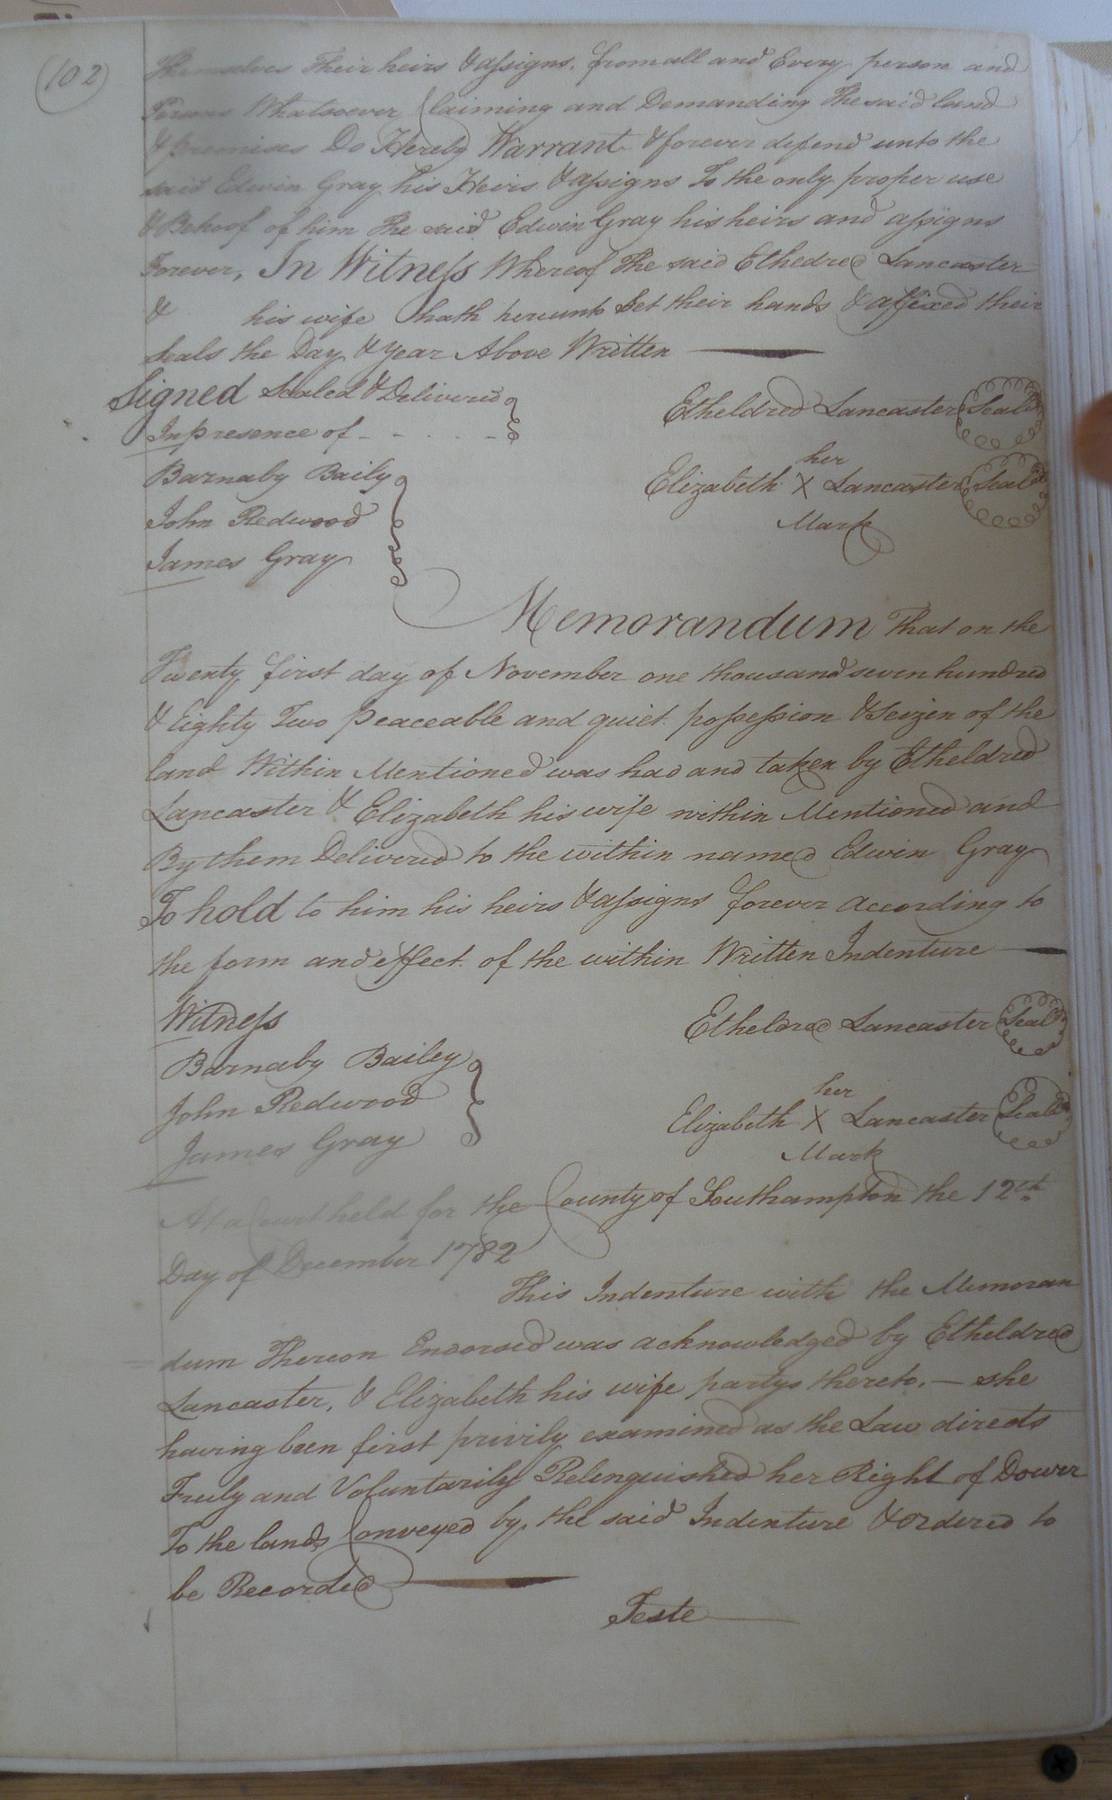 102
themselves Their heirs & assigns, from all and Every person and
Persons Whatsoever Claiming and Demanding The said land
& premises Do Hereby Warrant & forever defend unto the
said Edwin Gray his Heirs & assigns To the only proper use
& Behoof of him The said Edwin Gray his heirs and assigns
Forever, In Witness Whereof The said Ethedred Lancaster
& his wife hath hereunto Set their hands & affixed their
Seals the Day & Year Above Written
Signed Sealed & Delivered
In presence of - - - - -
Etheldred Lancaster Seal
Barnaby Baily
her
Elizabeth X Lancaster Seal
John Redwood
Mark
James Gray
Memorandum That on the
Twenty first day of November one thousand seven hundred
& Eighty Two peaceable and quiet possession & Seizen of the
land Within Mentioned was had and taken by Etheldred
Lancaster & Elizabeth his wife within Mentioned and
By them Delivered to the within named Edwin Gray
To hold to him his heirs & assigns forever according to
the form and effect of the within Written Indenture
Witness
Etheldred Lancaster Seal
Barnaby Bailey
her
John Redwood
Elizabeth X Lancaster Seal
James Gray
Mark
At a Court held for the County of Southampton the 12th
Day of December 1782
This Indenture with the Memoran
dum Thereon Endorsed was acknowledged by Etheldred
Lancaster, & Elizabeth his wife partys thereto, — she
having been first privily examined as the Law directs
Freely and Voluntarily Relenquished her Right of Dower
To the lands Conveyed by, the said Indenture & ordered to
be Recorded
Teste